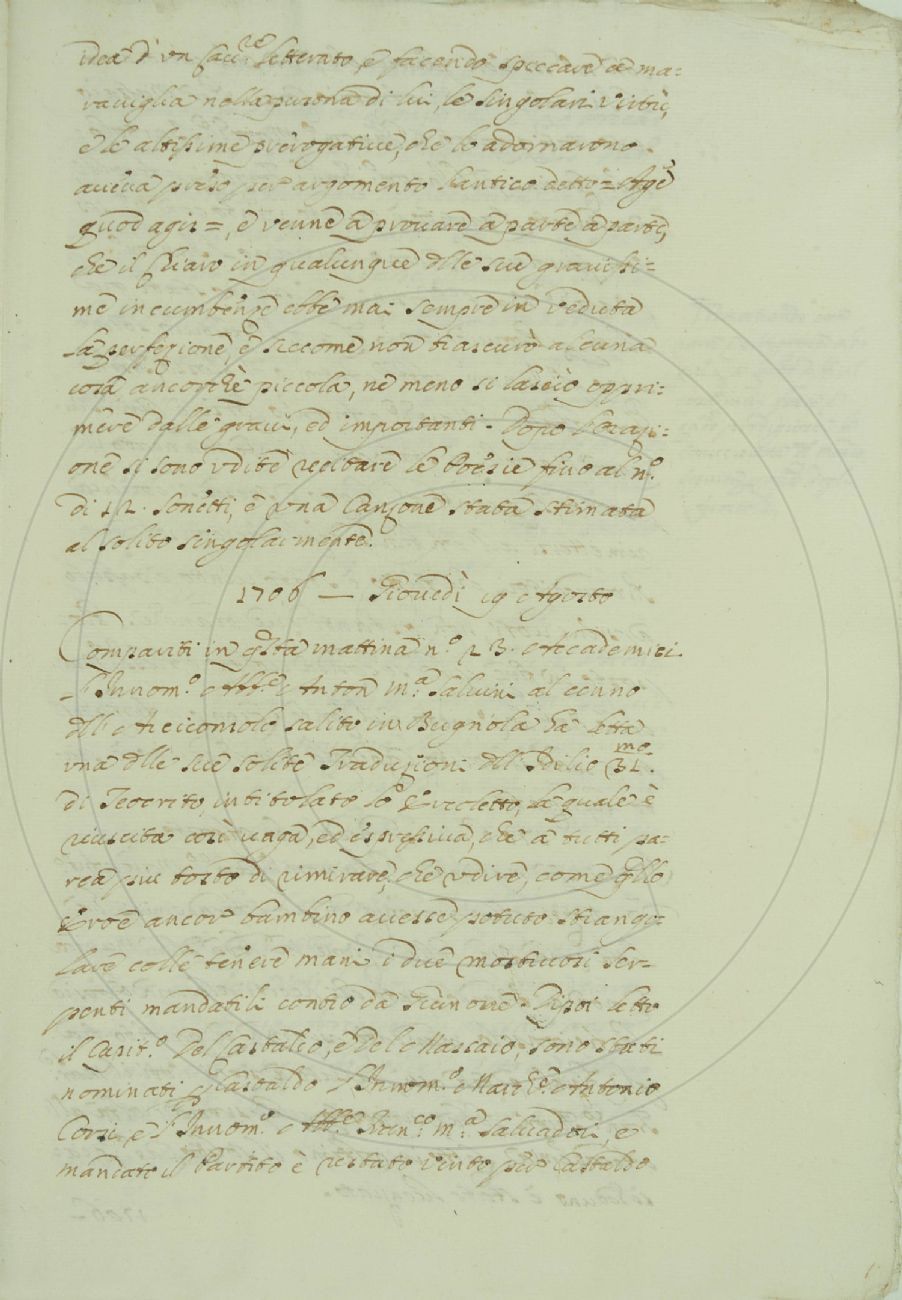 idea d'un Sac.re letterato, e facendo spiccare a ma=
raviglia nella persona di lui le singolari virtù,
e le altissime prerogative, che lo adornarono.
aveva preso per argomento l'antico detto = Age
quod agis =, e venne a provare a parte a parte,
che il Chiaro in qualunque dlle sue gravissi=
me incumbenze ebbe mai sempre in veduta
la perfezione, e siccome non trascurò alcuna
cosa ancorchè piccola, ne meno si lasciò oppri=
mere dalle gravi, ed importanti. Dopo l'Orazi=
one si sono udite recitare le Poesie fino al n.o
di 12. sonetti, e una Canzone stata stimata
al solito singolarmente.
1706 — Giovedì 19 Agosto
Compariti in q.sta mattina n.o 23. Accademici.
L'Innom.o Abb.e Anton M.a Salvini al cenno
dll' Arciconsolo salito in Bugnola ha letta
una dlle sue solite Traduzioni dll' Idilio 31.mo
di Teocrito, intitolato lo Ercoletto, la quale è
riuscita così vaga, ed espressiva, che a tutti pa=
rea più tosto di rimirare, che udire, come qllo
Eroe ancor bambino avesse potuto strango=
lare colle tenere mani i due mostruosi ser=
penti mandatili contro da Giunone. Dipoi letto
il Capit.o Del Castaldo, e Del Massaio, sono stati
nominati p Castaldo l'Innom.o March.e Antonio
Corsi, e l'Innom.o Abb.e Fran.co M.a Salvadori, e
mandato il Partito è restato vinto per Castaldo